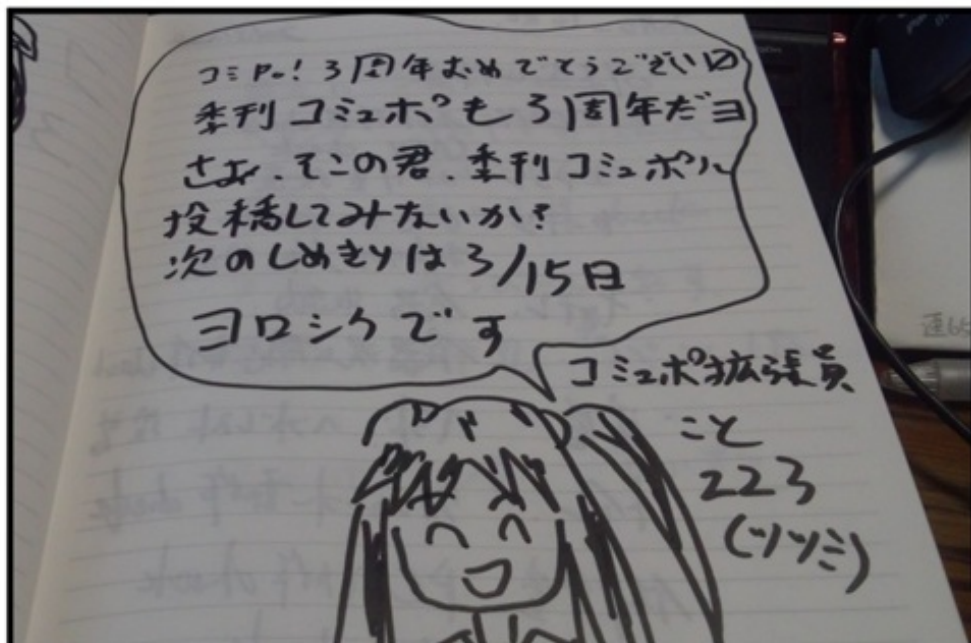 コミPo!3周年おめでとうござい〼
季刊コミュポも3周年だヨ
さぁ、そこの君、季刊コミュポへ
投稿してみないか?
次のしめきりは3/15日
ヨロシクです
コミュポ拡張員
こと
223
(ツツミ)